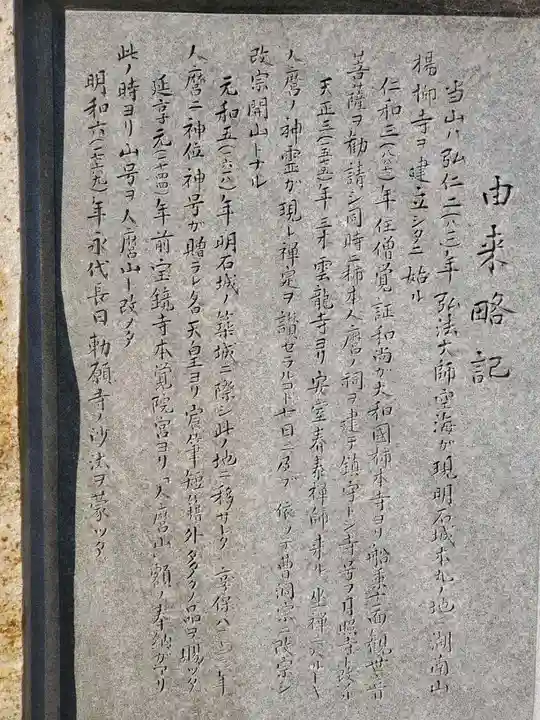 由来略記
当山ハ弘仁二(八一一)年 弘法大師空海ガ現明石城本丸ノ地ニ湖南山
楊柳寺ヲ建立シタニ始ル
仁和三(八八七)年住僧覚証和尚ガ大和國柿本寺ヨリ船乗十一面観世音
菩薩ヲ勧請シ同時ニ柿本人麿ノ祠ヲ建テ鎮守トシ寺号ヲ月照寺ト改ム
天正三(一五七五)年三木雲龍寺ヨリ安室春泰禅師来ル 坐禅
人麿ノ神霊ガ現レ禅定ヲ讃セラルコト七日ニ及ブ 依ッテ曹洞宗ニ改宗シ
改宗開山トナル
元和五(一六一八)年明石城ノ築城ニ際シ此ノ地ニ移サル 享保八(一七二三)年
人麿ニ神位神号が贈ラレ各天皇ヨリ宸筆短籍外多クノ品ヲ賜ッタ
延享元(一七四四)年前宝鏡寺本覚院宮ヨリ「人麿山」額ノ奉納ガアリ
此ノ時ヨリ山号ヲ人麿山ト改メタ
明和六(一七六九)年永代長日勅願寺ノ沙汰ヲ蒙ッタ